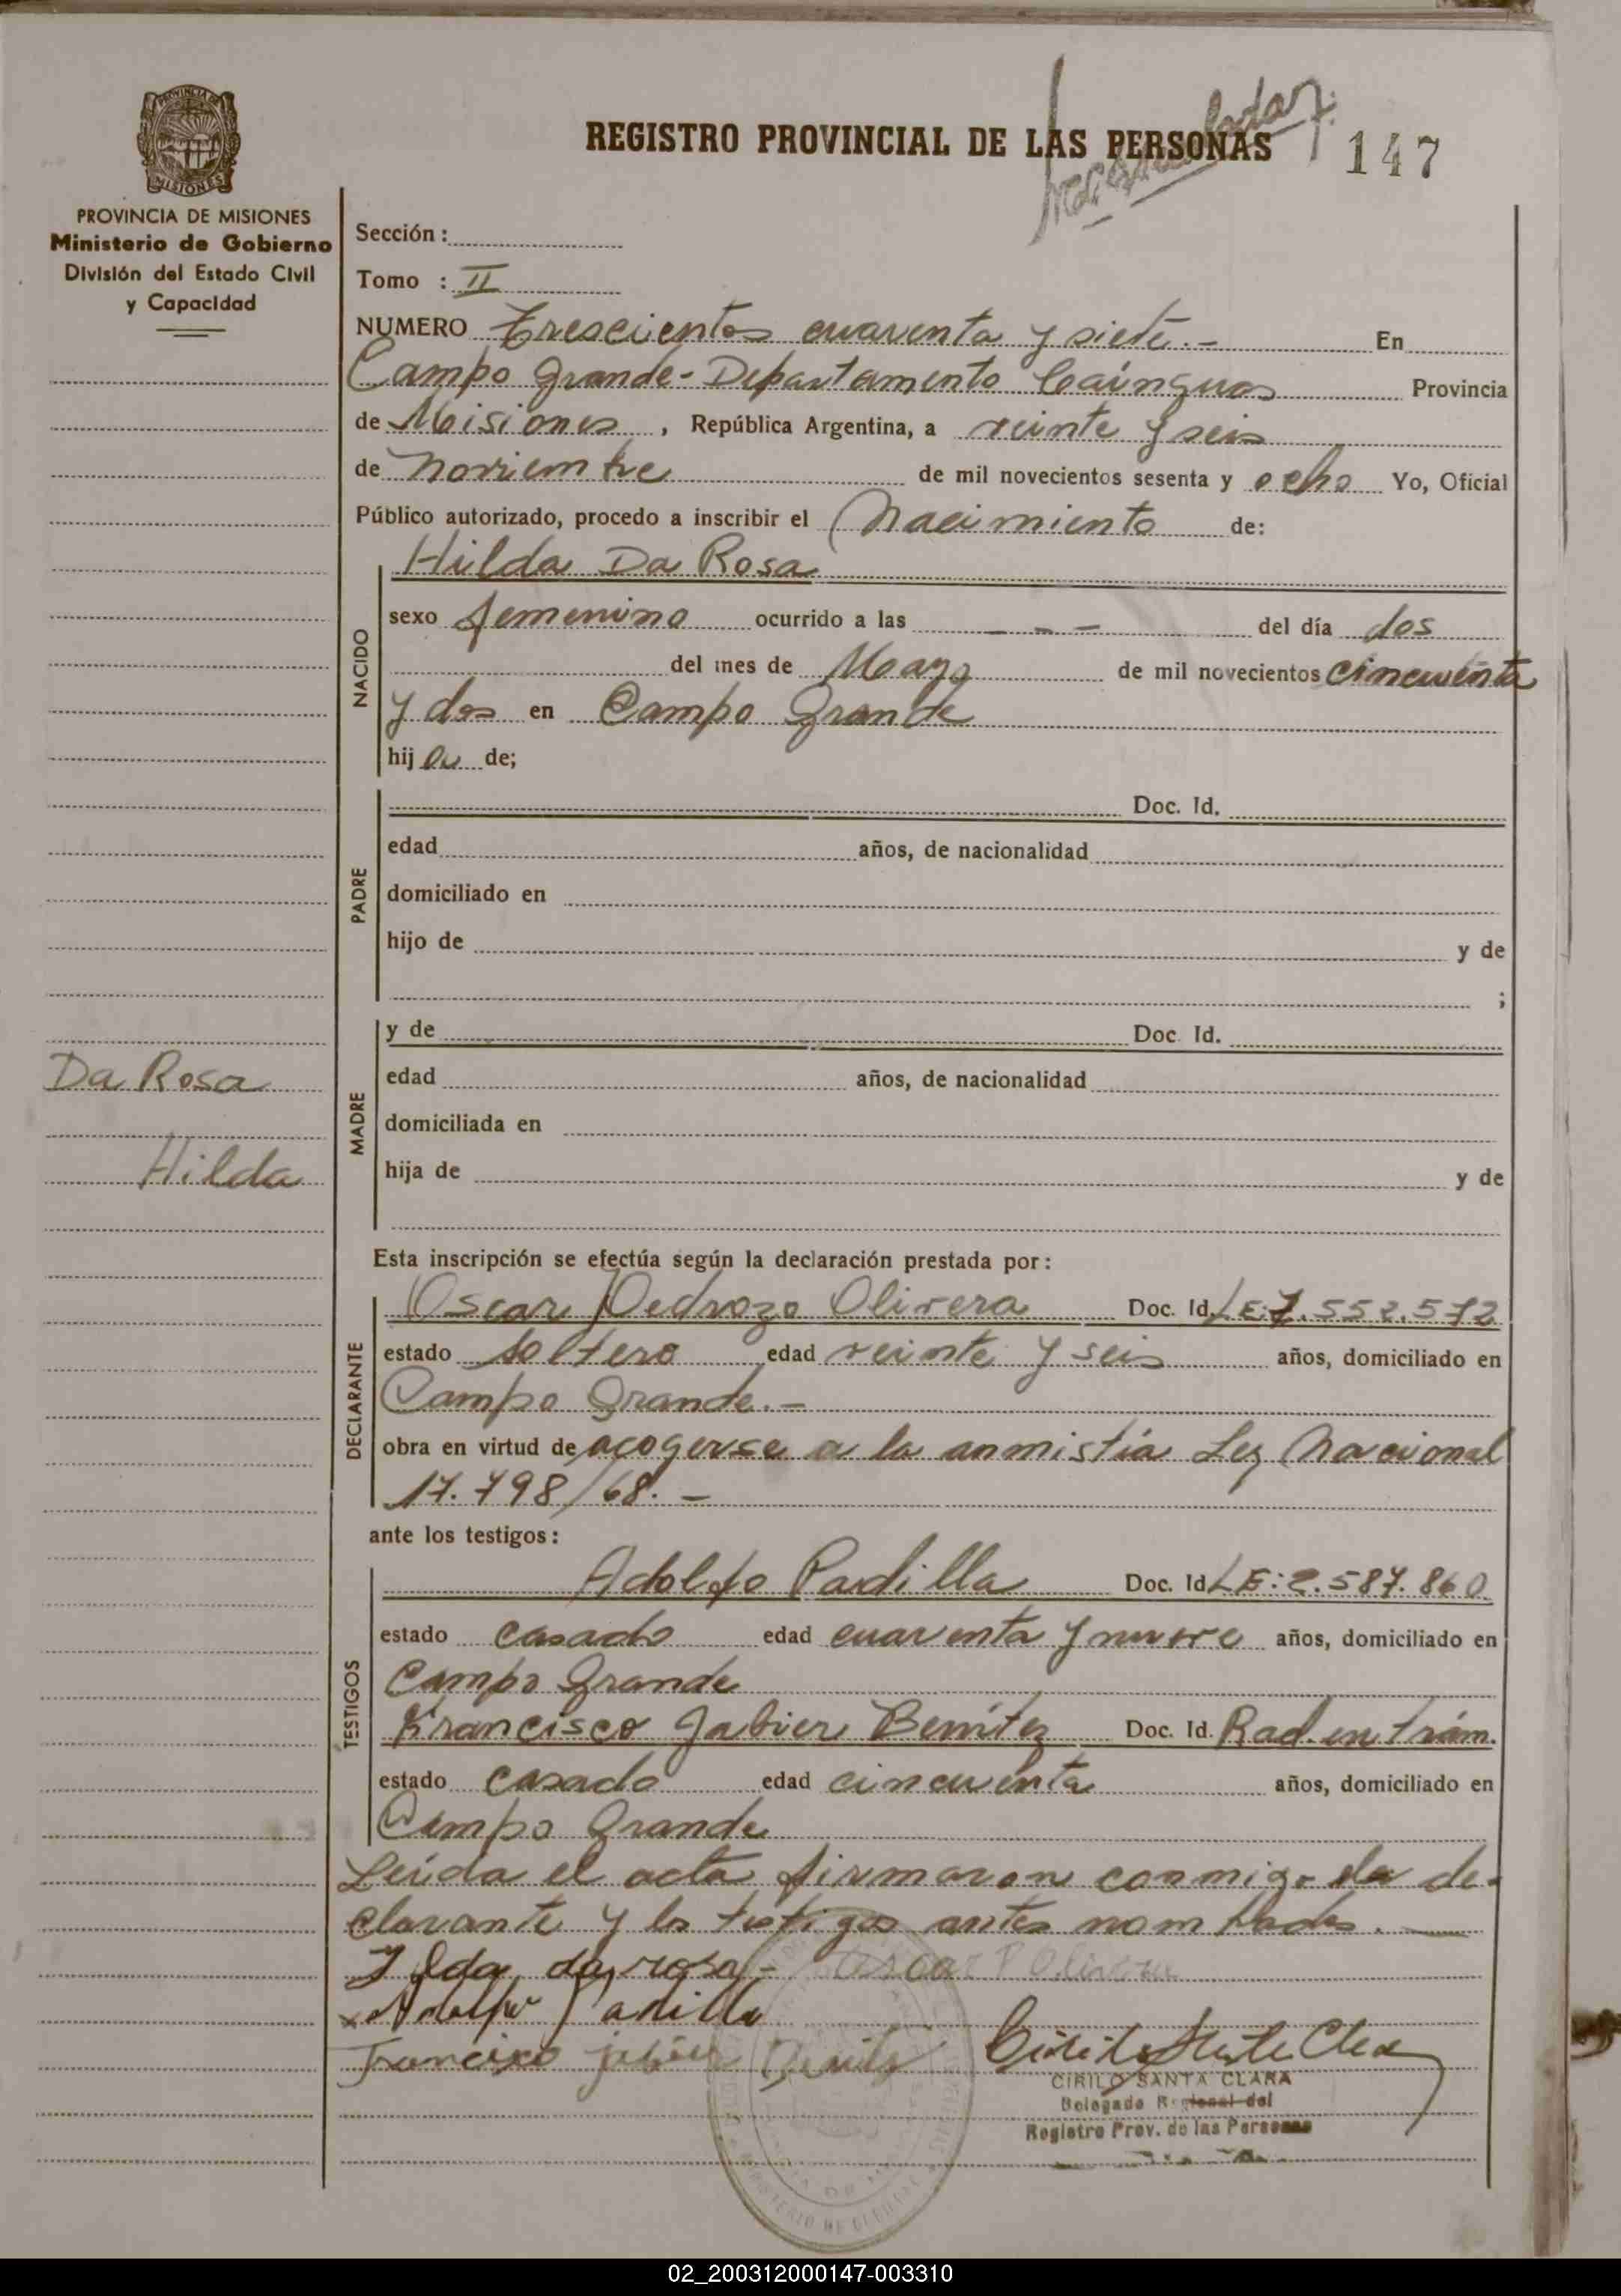 PROVINCIA DE
MISIONES
PROVINCIA DE MISIONES
Ministerio de Gobierno
División del Estado Civil
y Capacidad
REGISTRO PROVINCIAL DE LAS PERSONAS
147
Sección :
Tomo : II
NUMERO Trescientos cuarenta y siete.- En
Campo Grande - Departamento Cainguas Provincia
de Misiones , República Argentina, a veinte y seis
de noviembre de mil novecientos sesenta y ocho Yo, Oficial
Público autorizado, procedo a inscribir el Nacimiento de:
Hilda Da Rosa
NACIDO
sexo femenino ocurrido a las - - - del día dos
del mes de Mayo de mil novecientos cincuenta
y dos en Campo Grande
hij a de;
PADRE
Doc. Id.
edad años, de nacionalidad
domiciliado en
hijo de y de
;
MADRE
y de Doc. Id.
edad años, de nacionalidad
domiciliada en
hija de y de
Da Rosa
Hilda
Esta inscripción se efectúa según la declaración prestada por :
DECLARANTE
Oscar Pedrozo Olivera Doc. Id. LE:7.552.572
estado soltero edad veinte y seis años, domiciliado en
Campo Grande.-
obra en virtud de acogerse a la anmistía Ley Nacional
17.798/68.-
ante los testigos :
TESTIGOS
Adolfo Padilla Doc. Id LE:2.587.860
estado casado edad cuarenta y nueve años, domiciliado en
Campo Grande
Francisco Jabier Benítez Doc. Id. Rad. en trám.
estado casado edad cincuenta años, domiciliado en
Campo Grande
Leída el acta firmaron conmigo la de-
clarante y los testigos antes nombrados.
Ilda da rosa - Oscar P Olivera
Adolfo Padilla
Francisco jabier Benitez
CIRILO SANTA CLARA
Delegado Regional del
Registro Prov. de las Personas
02_200312000147-003310